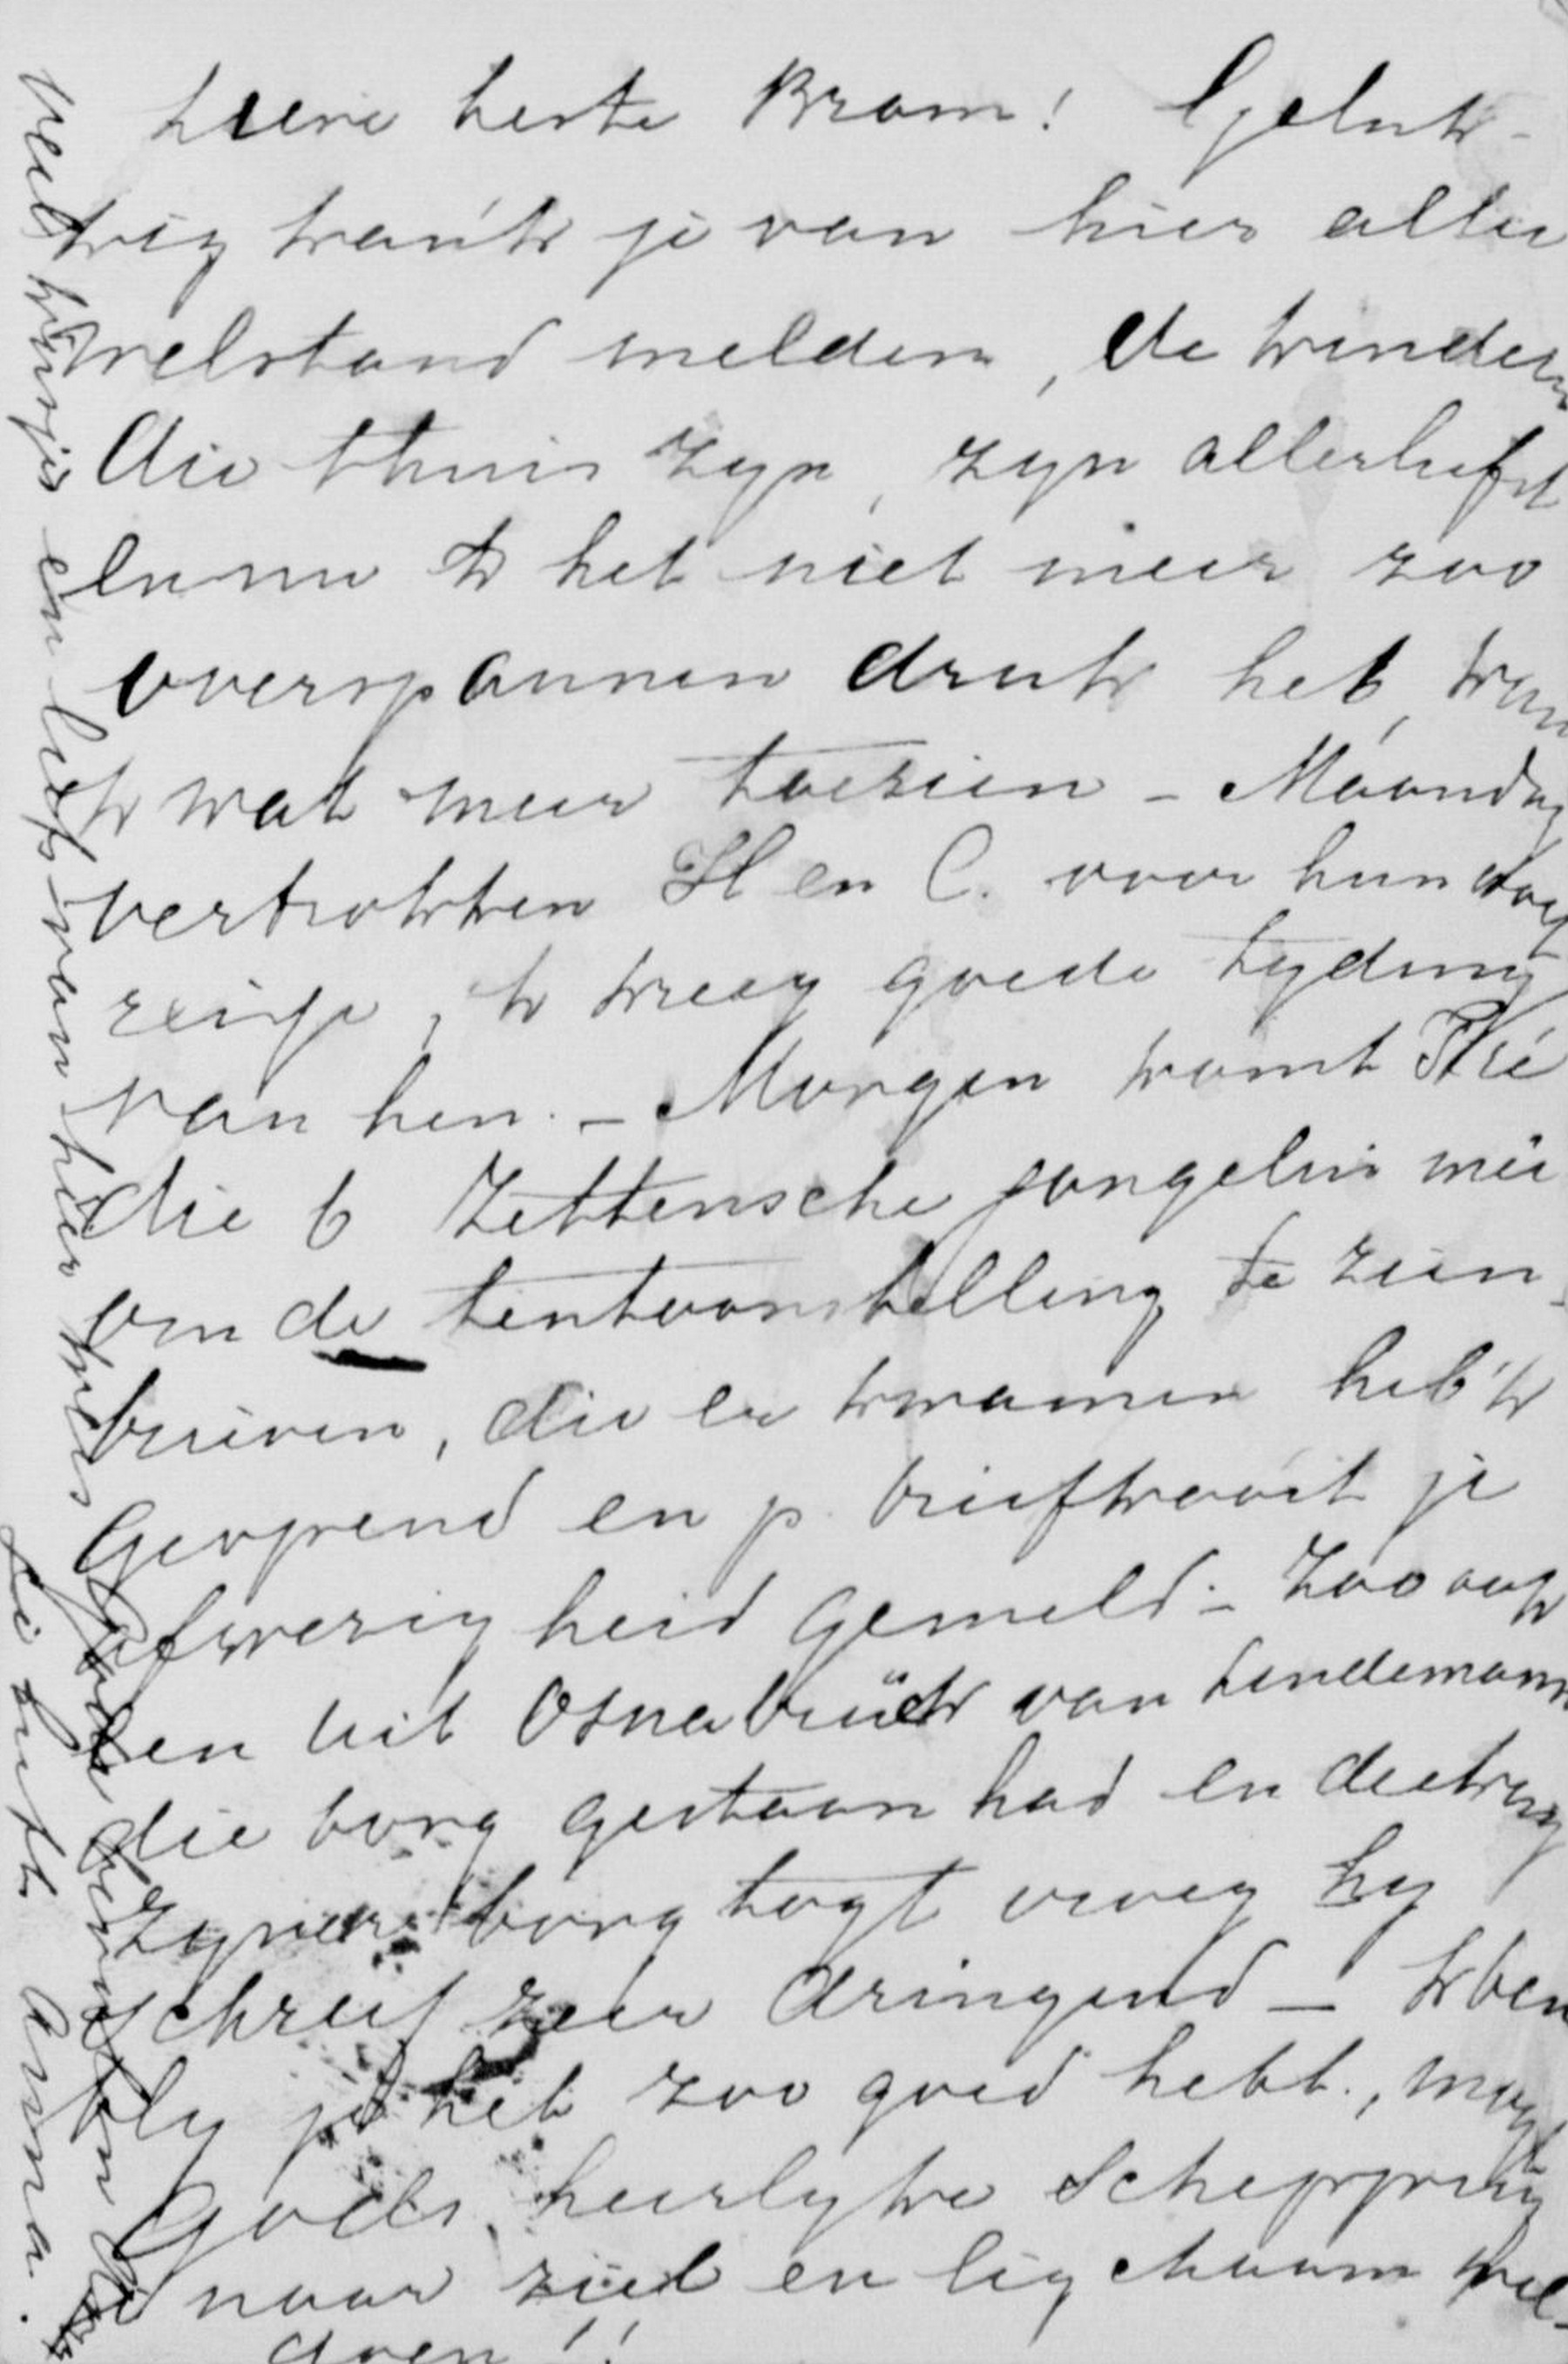 Lieve beste Bram! Geluk-
kig kan 'k je van hier alle
welstand melden, de kinderen
die thuis zyn, zyn allerliefst
en nu 'k het niet meer zoo
overspannen druk heb, kan
'k wat meer toezien - Maandag
vertrokken H en C. voor hun
reisje, 'k kreeg goede tyding
van hen. - Morgen komt
die 6 Zettensche jongelui mee
om de tentoonstelling te zien -
brieven, die er kwamen heb 'k
geopend en p. briefkaart je
afwezigheid gemeld - Zoo ook
een uit Osnabrück van Lindemann
die borg gestaan had en
zyner borgtogt vroeg hy
schreef zeer dringend - 'k ben
bly je het zoo goed hebt, moge
Gods heerlyke Schepping
je naar ziel en ligchaam wel-
doen!!
Veel kusjes en liefs van hier
Je liefh. Anna.